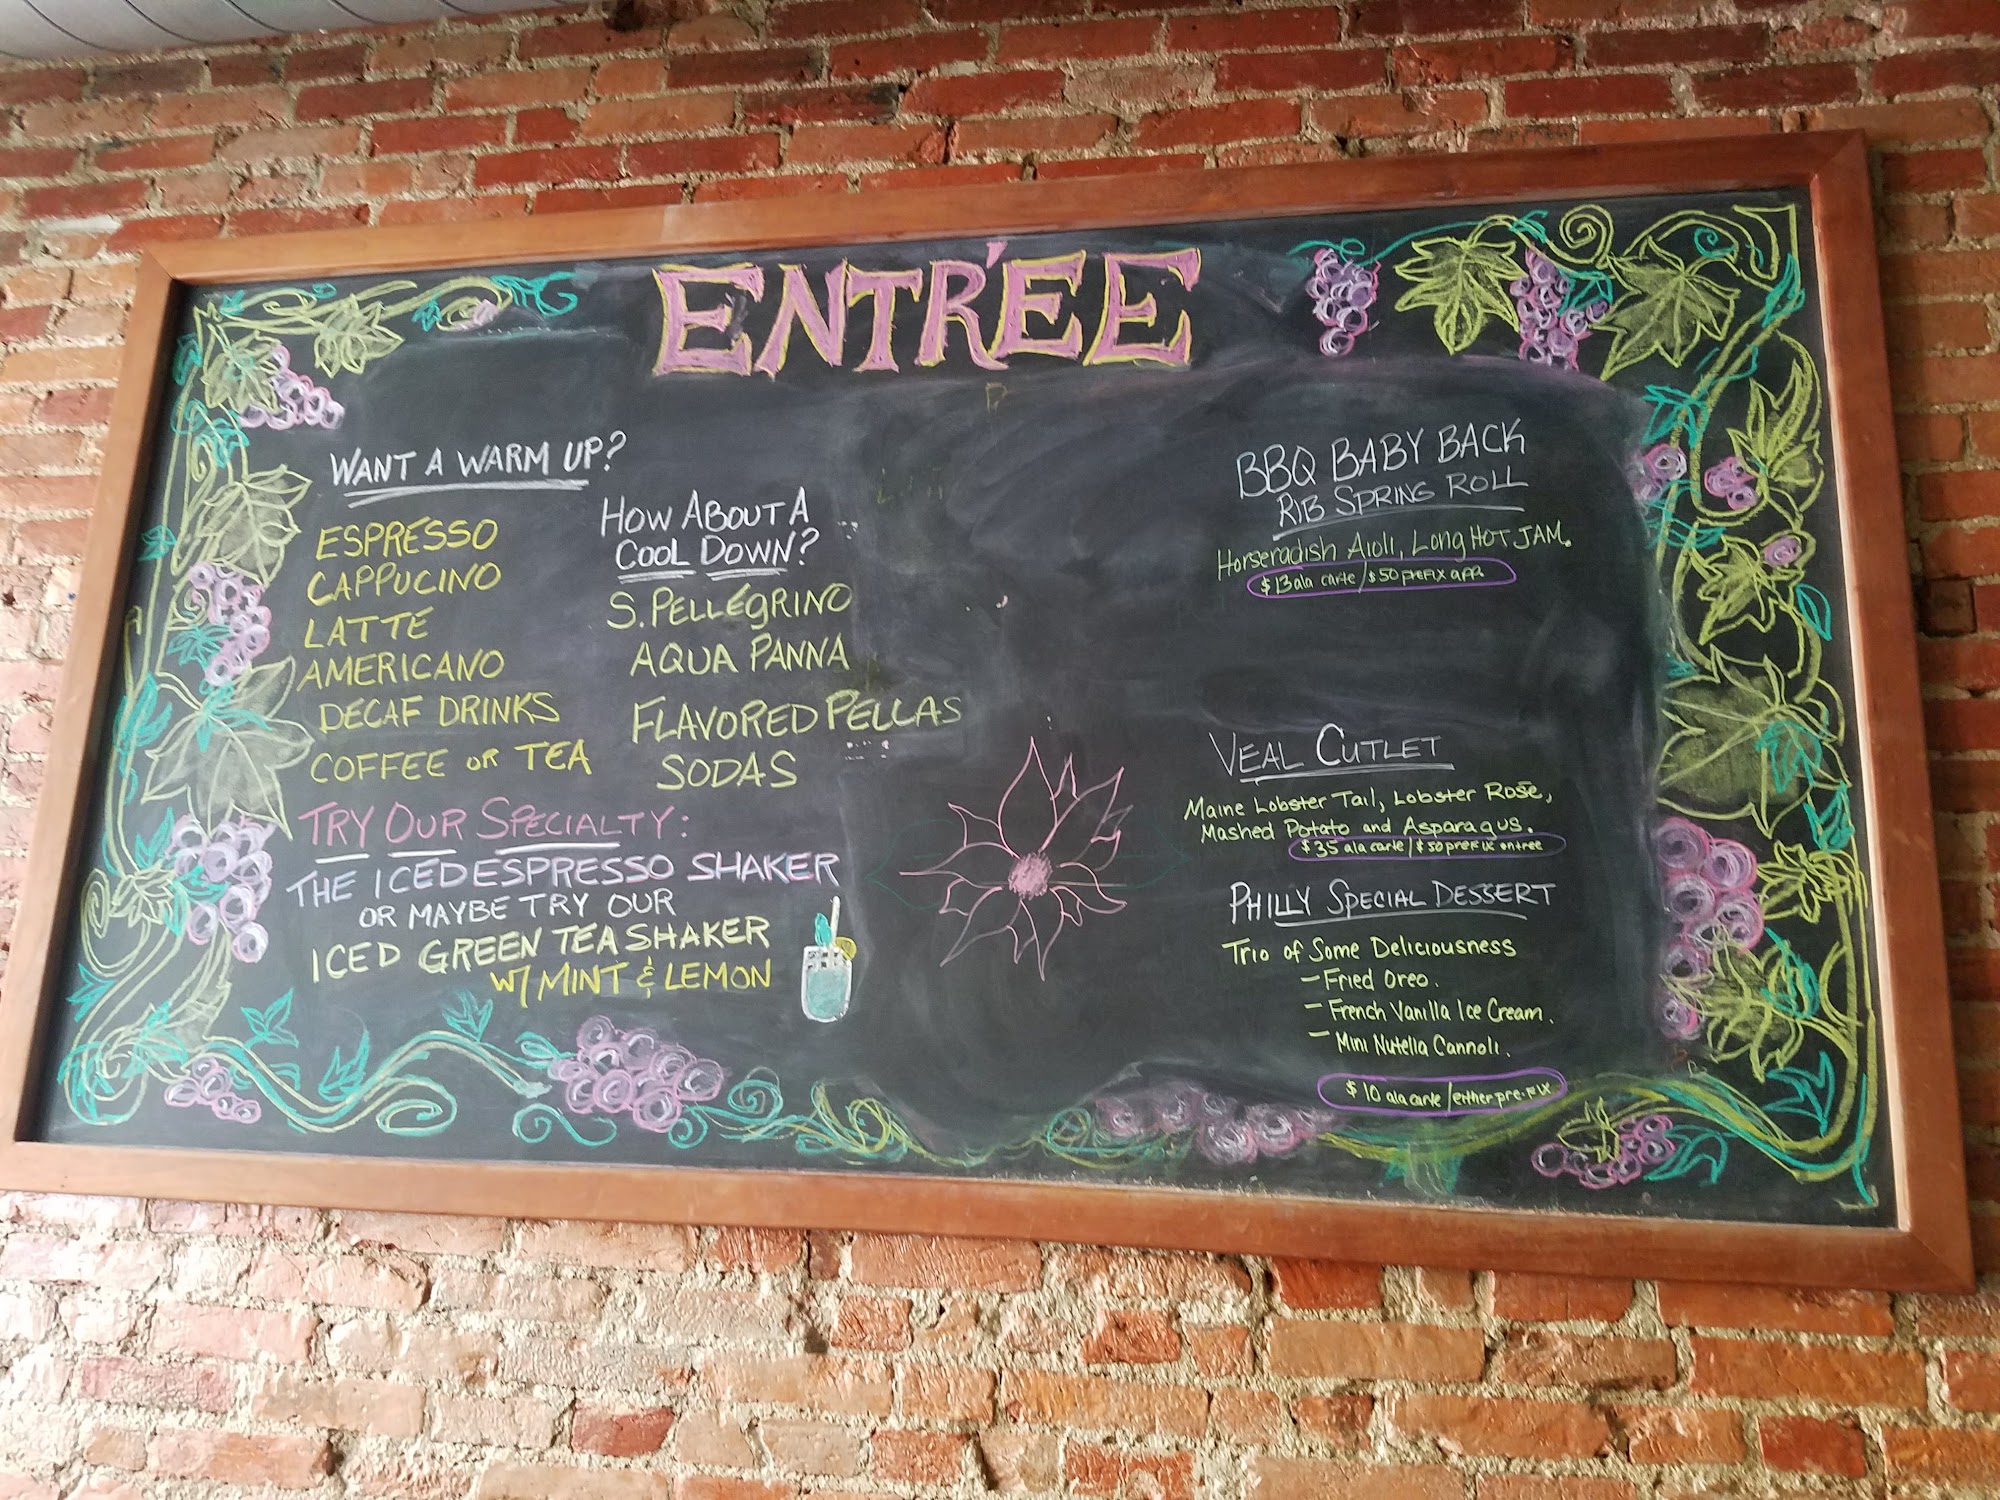 ENTRÉE
WANT A WARM UP?
ESPRESSO
CAPPUCINO
LATTÉ
AMERICANO
DECAF DRINKS
COFFEE OR TEA
HOW ABOUT A
COOL DOWN?
S. PELLEGRINO
AQUA PANNA
FLAVORED PELLAS
SODAS
TRY OUR SPECIALTY:
THE ICED ESPRESSO SHAKER
OR MAYBE TRY OUR
ICED GREEN TEA SHAKER
W/ MINT & LEMON
BBQ BABY BACK
RIB SPRING ROLL
Horseradish Aioli, Long HOT JAM.
$13 ala carte/$50 prefix app.
VEAL CUTLET
Maine Lobster Tail, Lobster Rosé,
Mashed Potato and Asparagus.
$35 ala carte/$50 prefix entree
PHILLY SPECIAL DESSERT
Trio of Some Deliciousness
- Fried Oreo.
- French Vanilla Ice Cream.
- Mini Nutella Cannoli.
$10 ala carte/either pre-fix